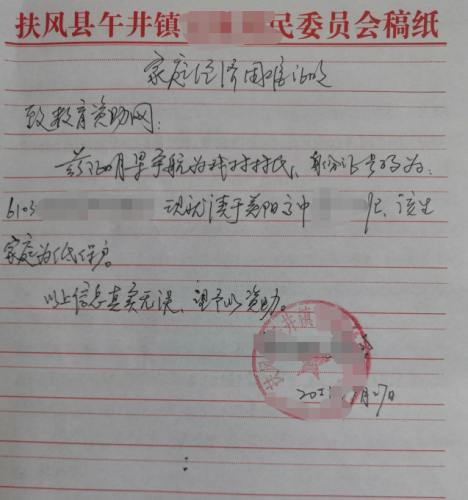 扶风县午井镇 民委员会稿纸
家庭经济困难证明
致教育资助网:
兹证明吴宇航为我村村民、身份证号码为:
6103 现就读于 阳高中 班、该生
家庭为低保户。
以上信息真实无误、望予以资助。
扶风 午井镇
月27日